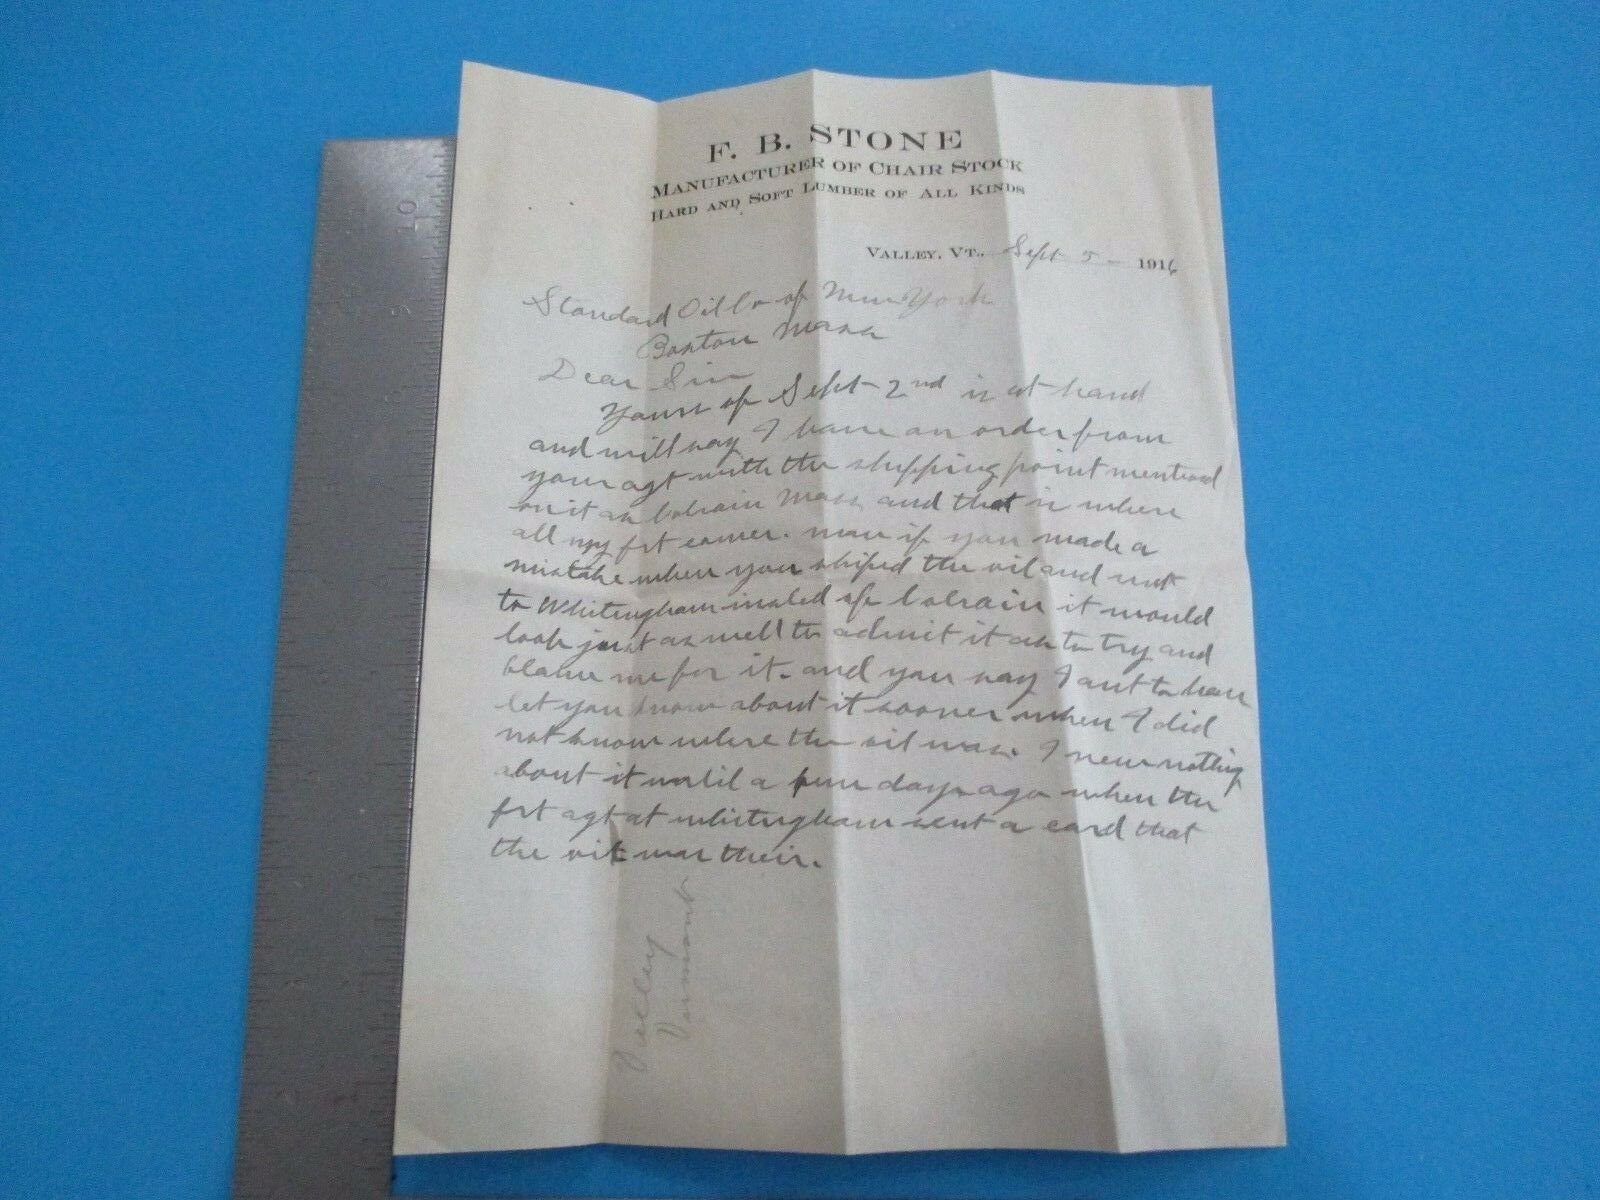 F. B. STONE
MANUFACTURER OF CHAIR STOCK
HARD AND SOFT LUMBER OF ALL KINDS
VALLEY, VT., Sept 5 - 1916
Standard Oil Co of New York
Boston Mass
Dear Sir
Yours of Sept 2nd is at hand
and will say I have an order from
your agt with the shipping point mentioned
on it as Colrain Mass and that is where
all my frt comes. now if you made a
mistake when you shiped the oil and sent
to Whitingham insted of Colrain it would
look just as well to admit it as to try and
blame me for it. and you say I aut to have
let you know about it sooner when I did
not know where the oil was. I new nothing
about it until a few days ago when the
frt agt at Whitingham sent a card that
the oil was their.
Valley
Vermont
10
9